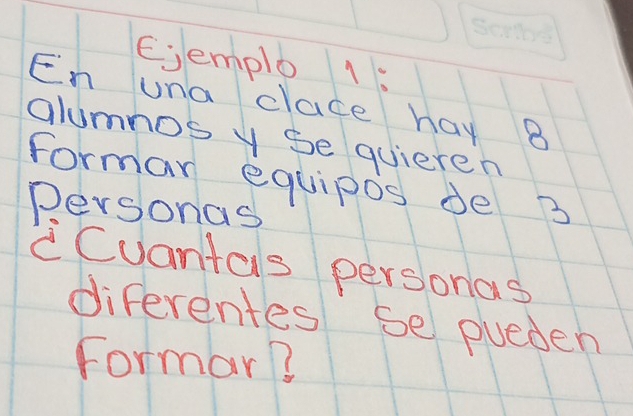 Scribe
Ejemplo 1:
En una clace hay 8
alumnos y se quieren
Formar equipos de 3
Personas
¿Cuantas personas
diferentes se pueden
Formar?